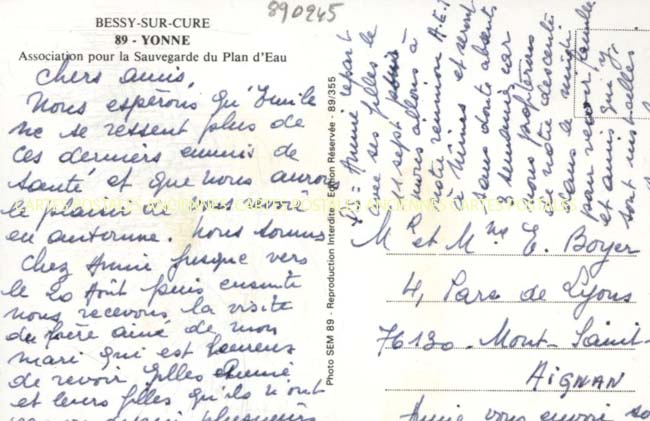 890245
BESSY-SUR-CURE
89 - YONNE
Association pour la Sauvegarde du Plan d'Eau
Chers amis,
Nous espérons qu'Emile
ne se ressent plus de
ces derniers ennuis de
santé et que nous aurons
le plaisir de
en automne. Nous sommes
chez Annie jusque vers
le 20 Août puis ensuite
nous recevons la visite
du frère ainé de mon
mari qui est heureux
de revoir Gilles Annie
et leurs filles qu'ils n'ont
plusieurs
Photo SEM 89 - Reproduction Interdite - Edition Réservée - 89/355
Annie repart
avec ses filles le
11 sept puis
nous allons à
notre réunion A.E.
à Nîmes et serons
sans doute absents
semaines car
nous profiterons
de notre descente
dans le midi
pour revoir famille
et amis qui y
sont installés
Mr et Mme E. Boyer
4, Parc de Lyons
76130 - Mont-Saint-
AIGNAN
Annie vous envoie
CARTES POSTALES ANCIENNES CARTES POSTALES ANCIENNES CARTES POSTALES